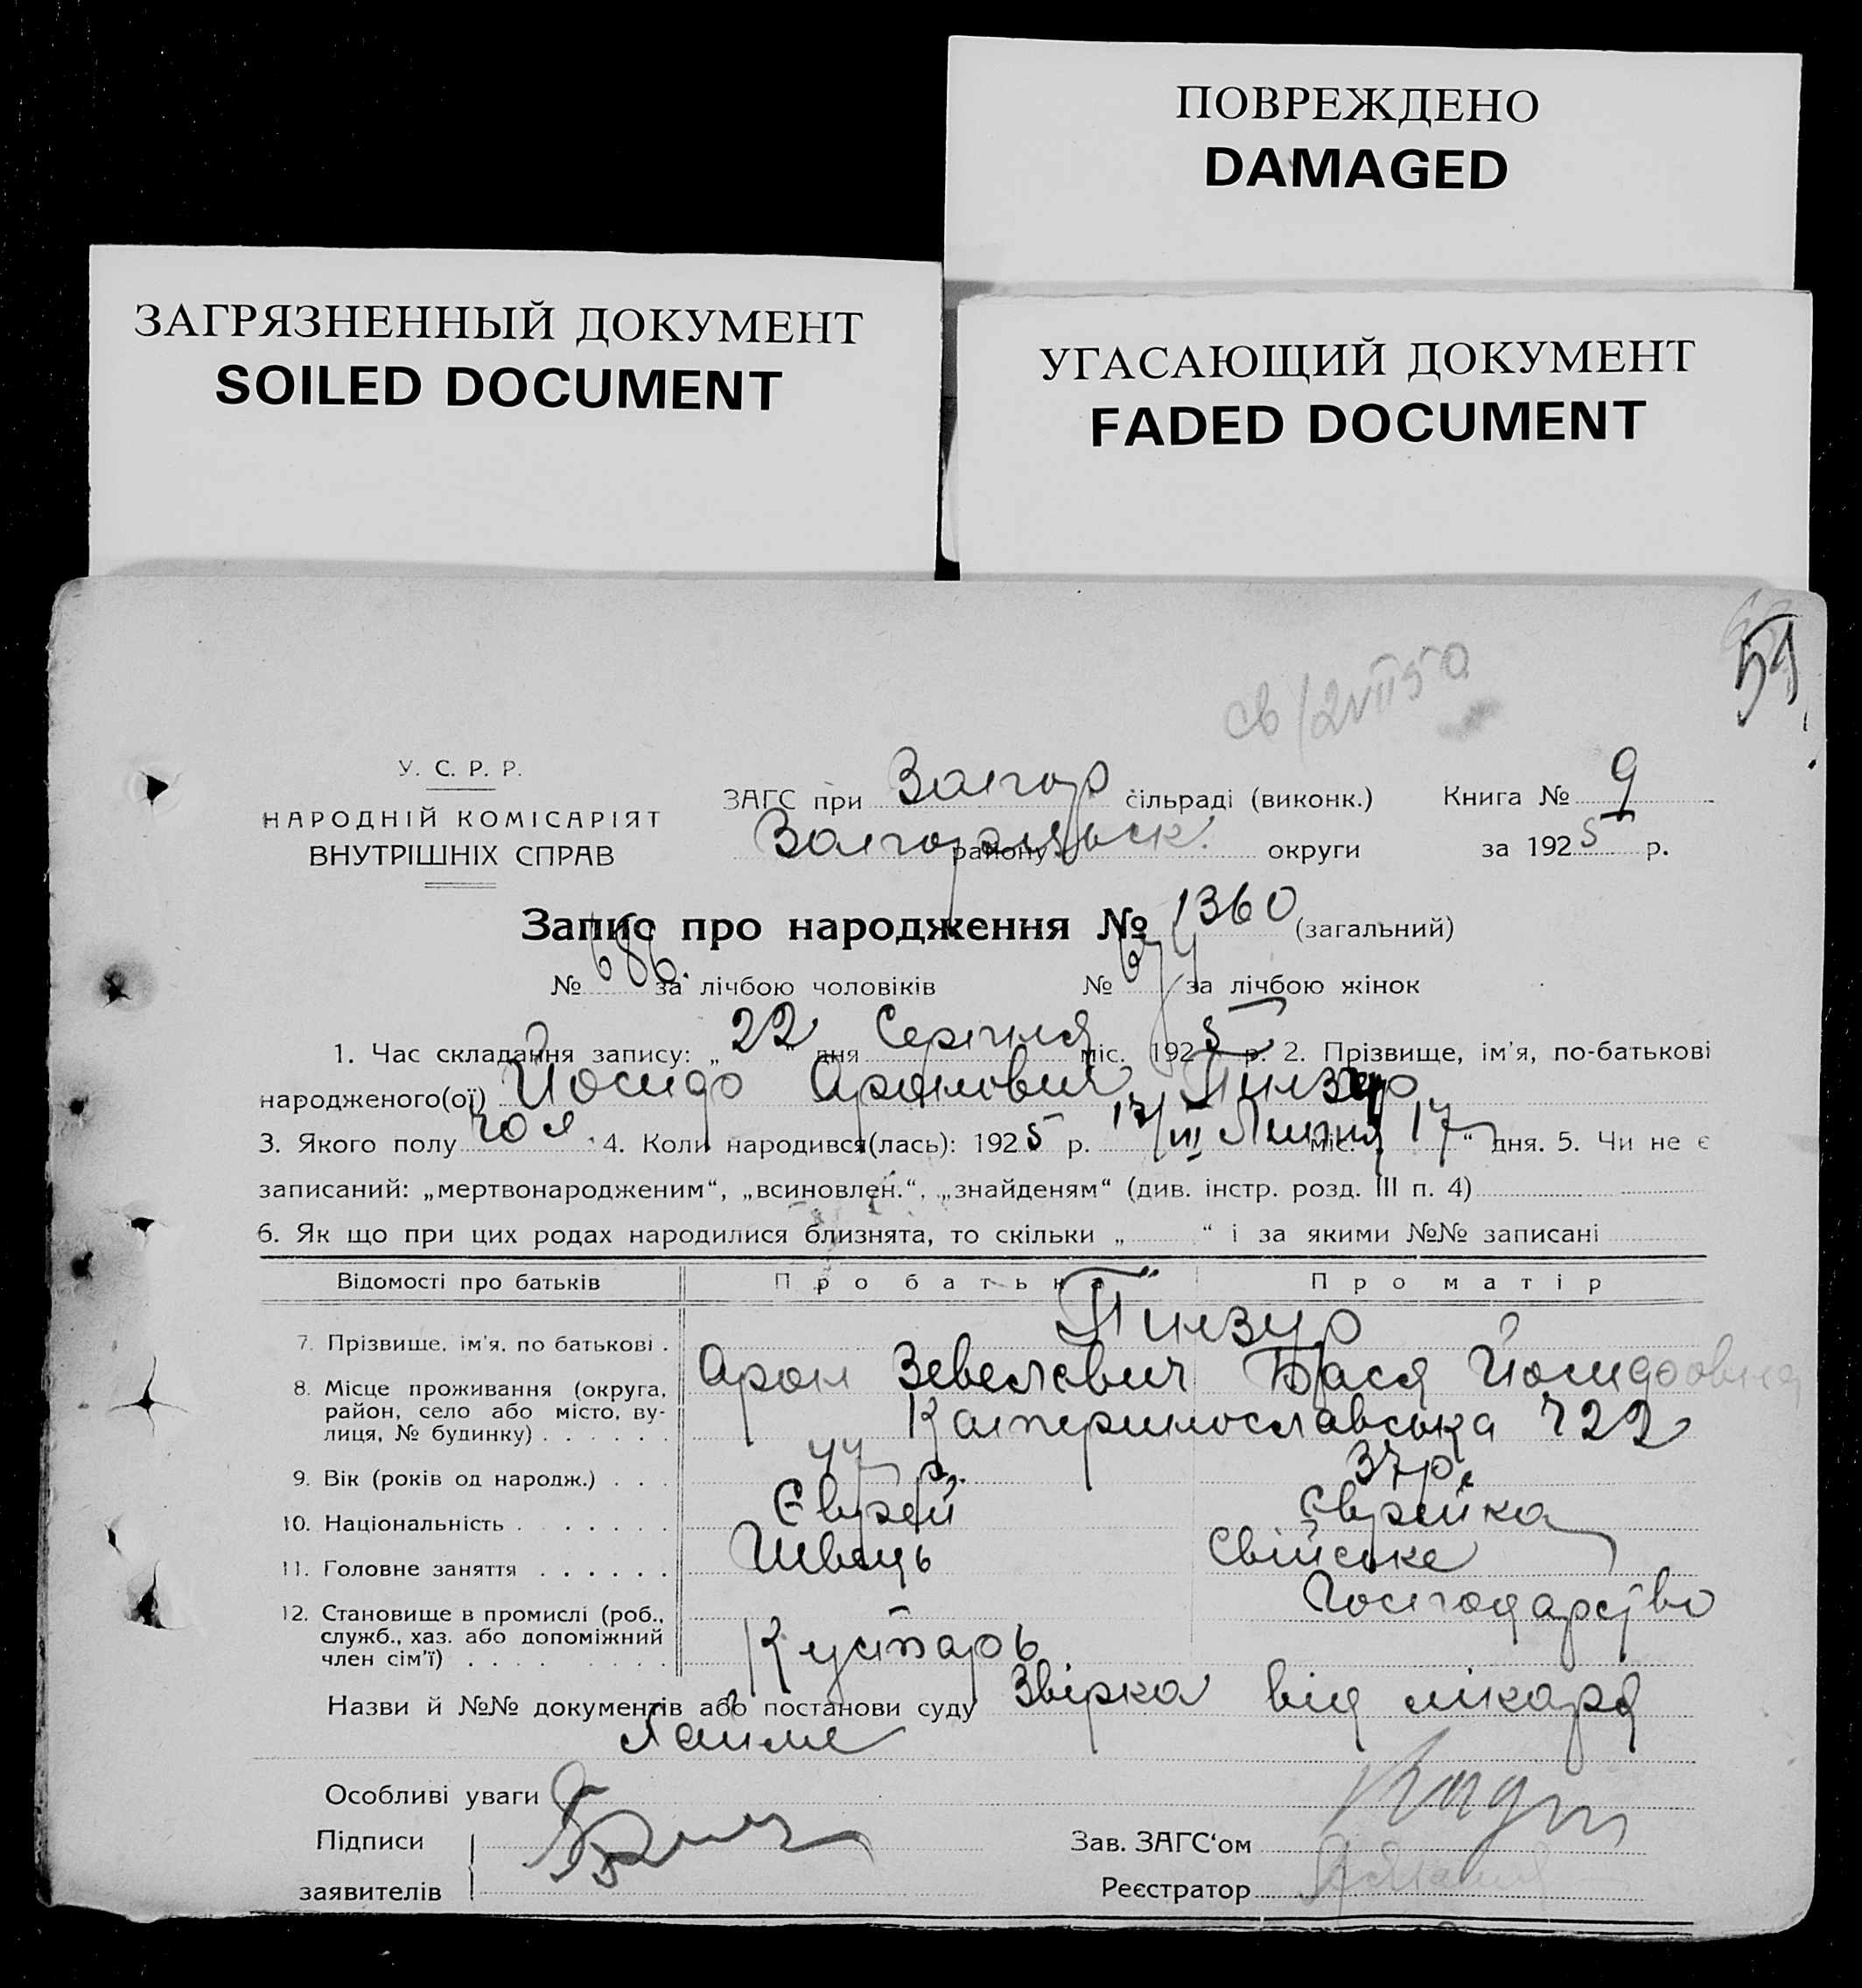 ПОВРЕЖДЕНО
DAMAGED
ЗАГРЯЗНЕННЫЙ ДОКУМЕНТ
SOILED DOCUMENT
УГАСАЮЩИЙ ДОКУМЕНТ
FADED DOCUMENT
59
У. С. Р. Р.
НАРОДНІЙ КОМІСАРІЯТ
ВНУТРІШНІХ СПРАВ
ЗАГС при Запор сільраді (виконк.) Книга № 9
району округи за 1925 р.
Запис про народження № 1360 (загальний)
№ 686. за лічбою чоловіків № 674 за лічбою жінок
1. Час складання запису: „22“ дня Серпня міс. 1925 р. 2. Прізвище, ім'я, по-батькові
народженого(ої) Йосиф Аронович Пинзур
3. Якого полу чол. 4. Коли народився(лась): 1925 р. 17/VII Липня міс. „17“ дня. 5. Чи не є
записаний: „мертвонародженим“, „всиновлен.“, „знайденям“ (див. інстр. розд. III п. 4)
6. Як що при цих родах народилися близнята, то скільки „ “ і за якими №№ записані
Відомості про батьків Про батька Про матір
Пинзур
7. Прізвище, ім'я, по батькові .
Арон Зевелевич Бася Йосифовна
8. Місце проживання (округа,
район, село або місто, ву-
лиця, № будинку) . . . . . . Катеринославська 722
9. Вік (років од народж.) . . . 47 р. 37 р.
10. Національність . . . . . . . Єврей Єврейка
11. Головне заняття . . . . . . Швець Свійське
Господарство
12. Становище в промислі (роб.,
служб., хаз. або допоміжний
член сім'ї) . . . . . . . . . Кустарь
Назви й №№ документів або постанови суду Звірка від лікаря
Особливі уваги
Підписи
заявителів
Зав. ЗАГС'ом
Реєстратор